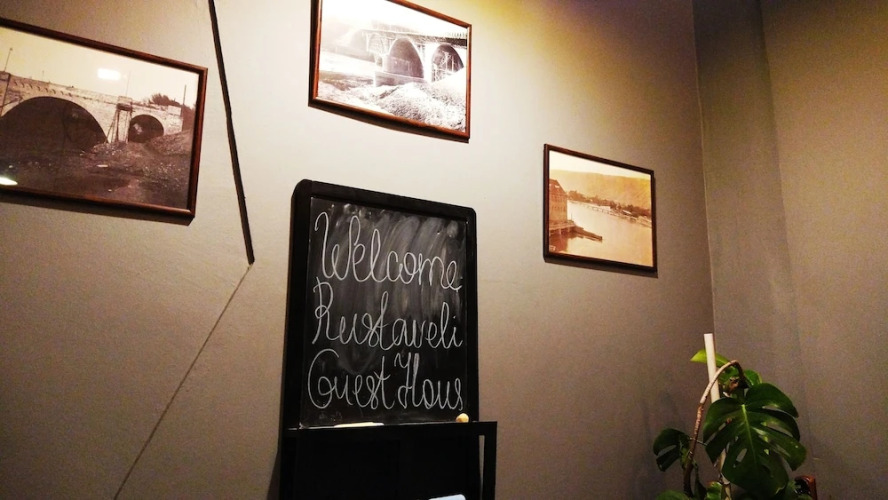 Welcome
Rustaveli
Guest Hous